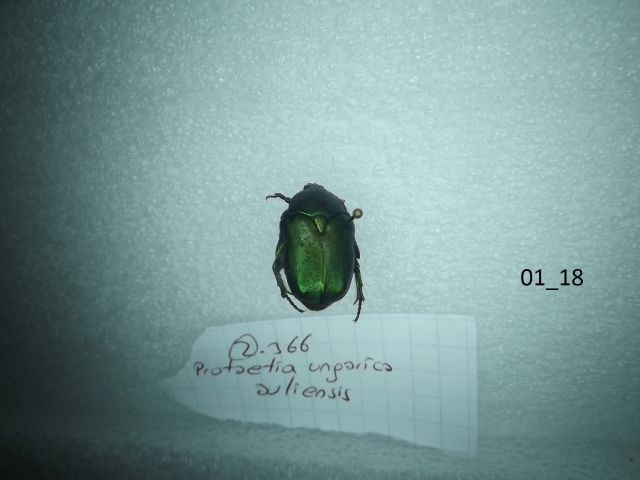 01_18
2.366
Protaetia ungarica
auliensis